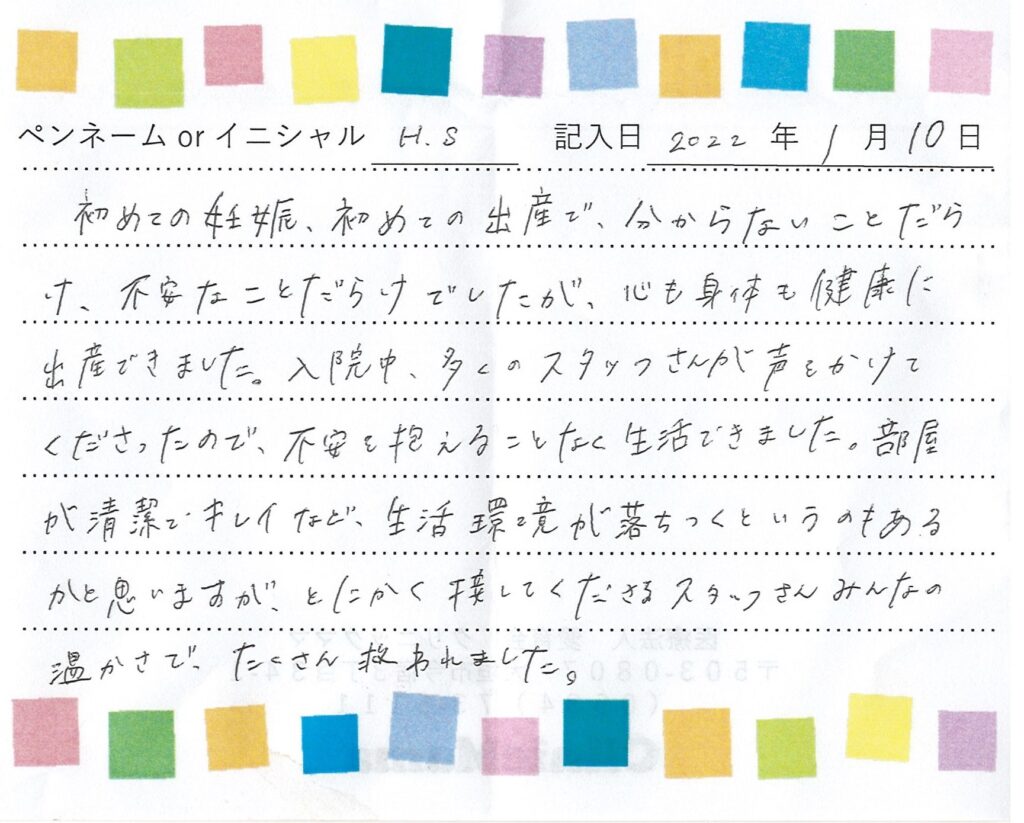 ペンネーム or イニシャル H.S 記入日 2022 年 1 月 10 日
初めての妊娠、初めての出産で、分からないことだら
け、不安なことだらけでしたが、心も身体も健康に
出産できました。入院中、多くのスタッフさんが声をかけて
くださったので、不安を抱えることなく生活できました。部屋
が清潔でキレイなど、生活環境が落ちつくというのもある
かと思いますが、とにかく接してくださるスタッフさんみんなの
温かさで、たくさん救われました。